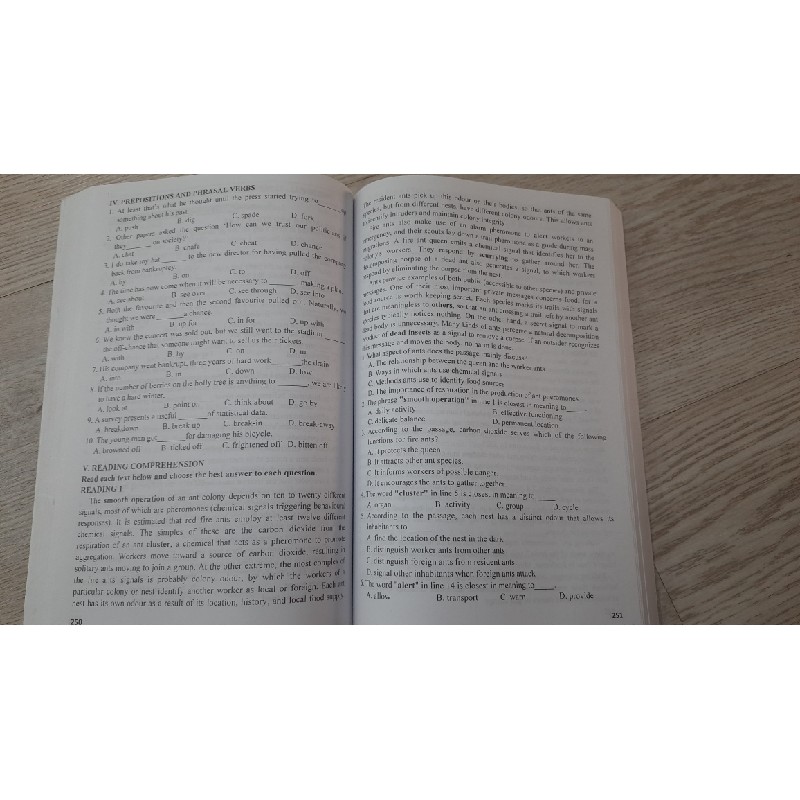 IV. PREPOSITIONS AND PHRASAL VERBS
1. At least that's what he thought until the press started trying to
something about his past.
A. push B. dig C. spade D. fork
2. Other papers asked the question "How can we trust our
they on society?
A. cheat D. change
3. I do take my hat to the new director for having pulled the company
back from bankruptcy.
A. by B. on C. to D. off
4. The time has now come when it will be necessary to making a plan.
A. see about B. see over C. see through D. see into
5. Both the favourite and then the second favourite pulled Naturally, we
thought we were a chance.
A. in with B. up for C. in for D. up with
6. We knew the concert was sold out, but we still went to the stadium
the off-chance that someone might want to sell us their tickets.
A. with B. by C. on D. in
7. His company went bankrupt, three years of hard work the drain.
B. in C. down D. low
8. If the number of berries on the holly tree is anything to , we are
to have a hard winter.
A. look at B. point to C. think about D. go by
9. A survey presents a useful of statistical data.
A. breakdown B. break up C. break-in D. break away
10. The young man got for damaging his bicycle.
A. browned off B. ticked off C. frightened off D. bitten off
V. READING COMPREHENSION
Read each text below and choose the best answer to each question
READING 1
The smooth operation of an ant colony depends on ten to twenty different
signals, most of which are pheromones (chemical signals triggering behavioral
responses). It is estimated that red fire ants employ at least twelve different
chemical signals. The simplest of these are the carbon dioxide from the
respiration of an ant cluster, a chemical that acts as a pheromone to promote
aggregation. Workers move toward a source of carbon dioxide, resulting in
solitary ants moving to join a group. At the other extreme, the most complex of
the fire ants signals is probably colony odour, by which the workers of a
particular colony or nest identify another worker as local or foreign. Each ant
nest has its own odour as a result of its location, history, and local food supply.
250
The resident ants pick up this odour on their bodies, so that ants of the same
species, but from different nests, have different colony odours. This allows ants
to identify intruders and maintain colony integrity.
Fire ants also make use of an alarm pheromone to alert workers to an
emergency, and their scouts lay down a trail pheromone as a guide during mass
migrations. A fire ant queen emits a chemical signal that identifies her to the
colony's workers. They respond by scurrying to gather around her. The
decomposing corpse of a dead ant also generates a signal, to which workers
respond by eliminating the corpse from the nest.
Ants provide examples of both public (accessible to other species) and private
messages. One of their most important private messages concerns food, for a
food source is worth keeping secret. Each species marks its trails with signals
that are meaningless to others, so that an ant crossing a trail left by another ant
species typically notices nothing. On the other hand, a secret signal to mark a
dead body is unnecessary. Many kinds of ants perceive a natural decomposition
product of dead insects as a signal to remove a corpse. If an outsider recognizes
this message and moves the body, no harm is done.
1. What aspect of ants does the passage mainly discuss?
A. The relationship between the queen and the worker ants
B. Ways in which ants use chemical signals
C. Methods ants use to identify food sources
D. The importance of respiration in the production of ant pheromones
2. The phrase "smooth operation" in line 1 is closest in meaning to
A. daily activity B. effective functioning
C. delicate balance D. permanent location
According to the passage, carbon dioxide serves which of the following
functions for fire ants?
A. It protects the queen.
B. It attracts other ant species.
C. It informs workers of possible danger.
D. It encourages the ants to gather together
4. The word "cluster" in line 5 is closest in meaning to
A. organ B. activity C. group D. cycle
5. According to the passage, each nest has a distinct odour that allows its
inhabitants to
A. find the location of the nest in the dark
B. distinguish worker ants from other ants
C. distinguish foreign ants from resident ants
D. signal other inhabitants when foreign ants attack
6. The word "alert" in line 14 is closest in meaning to
A. allow B. transport C. warn D. provide
251